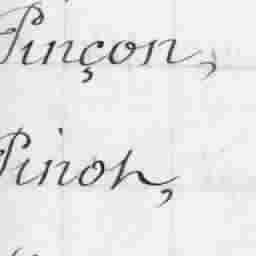 Pinçon,
Pinot,